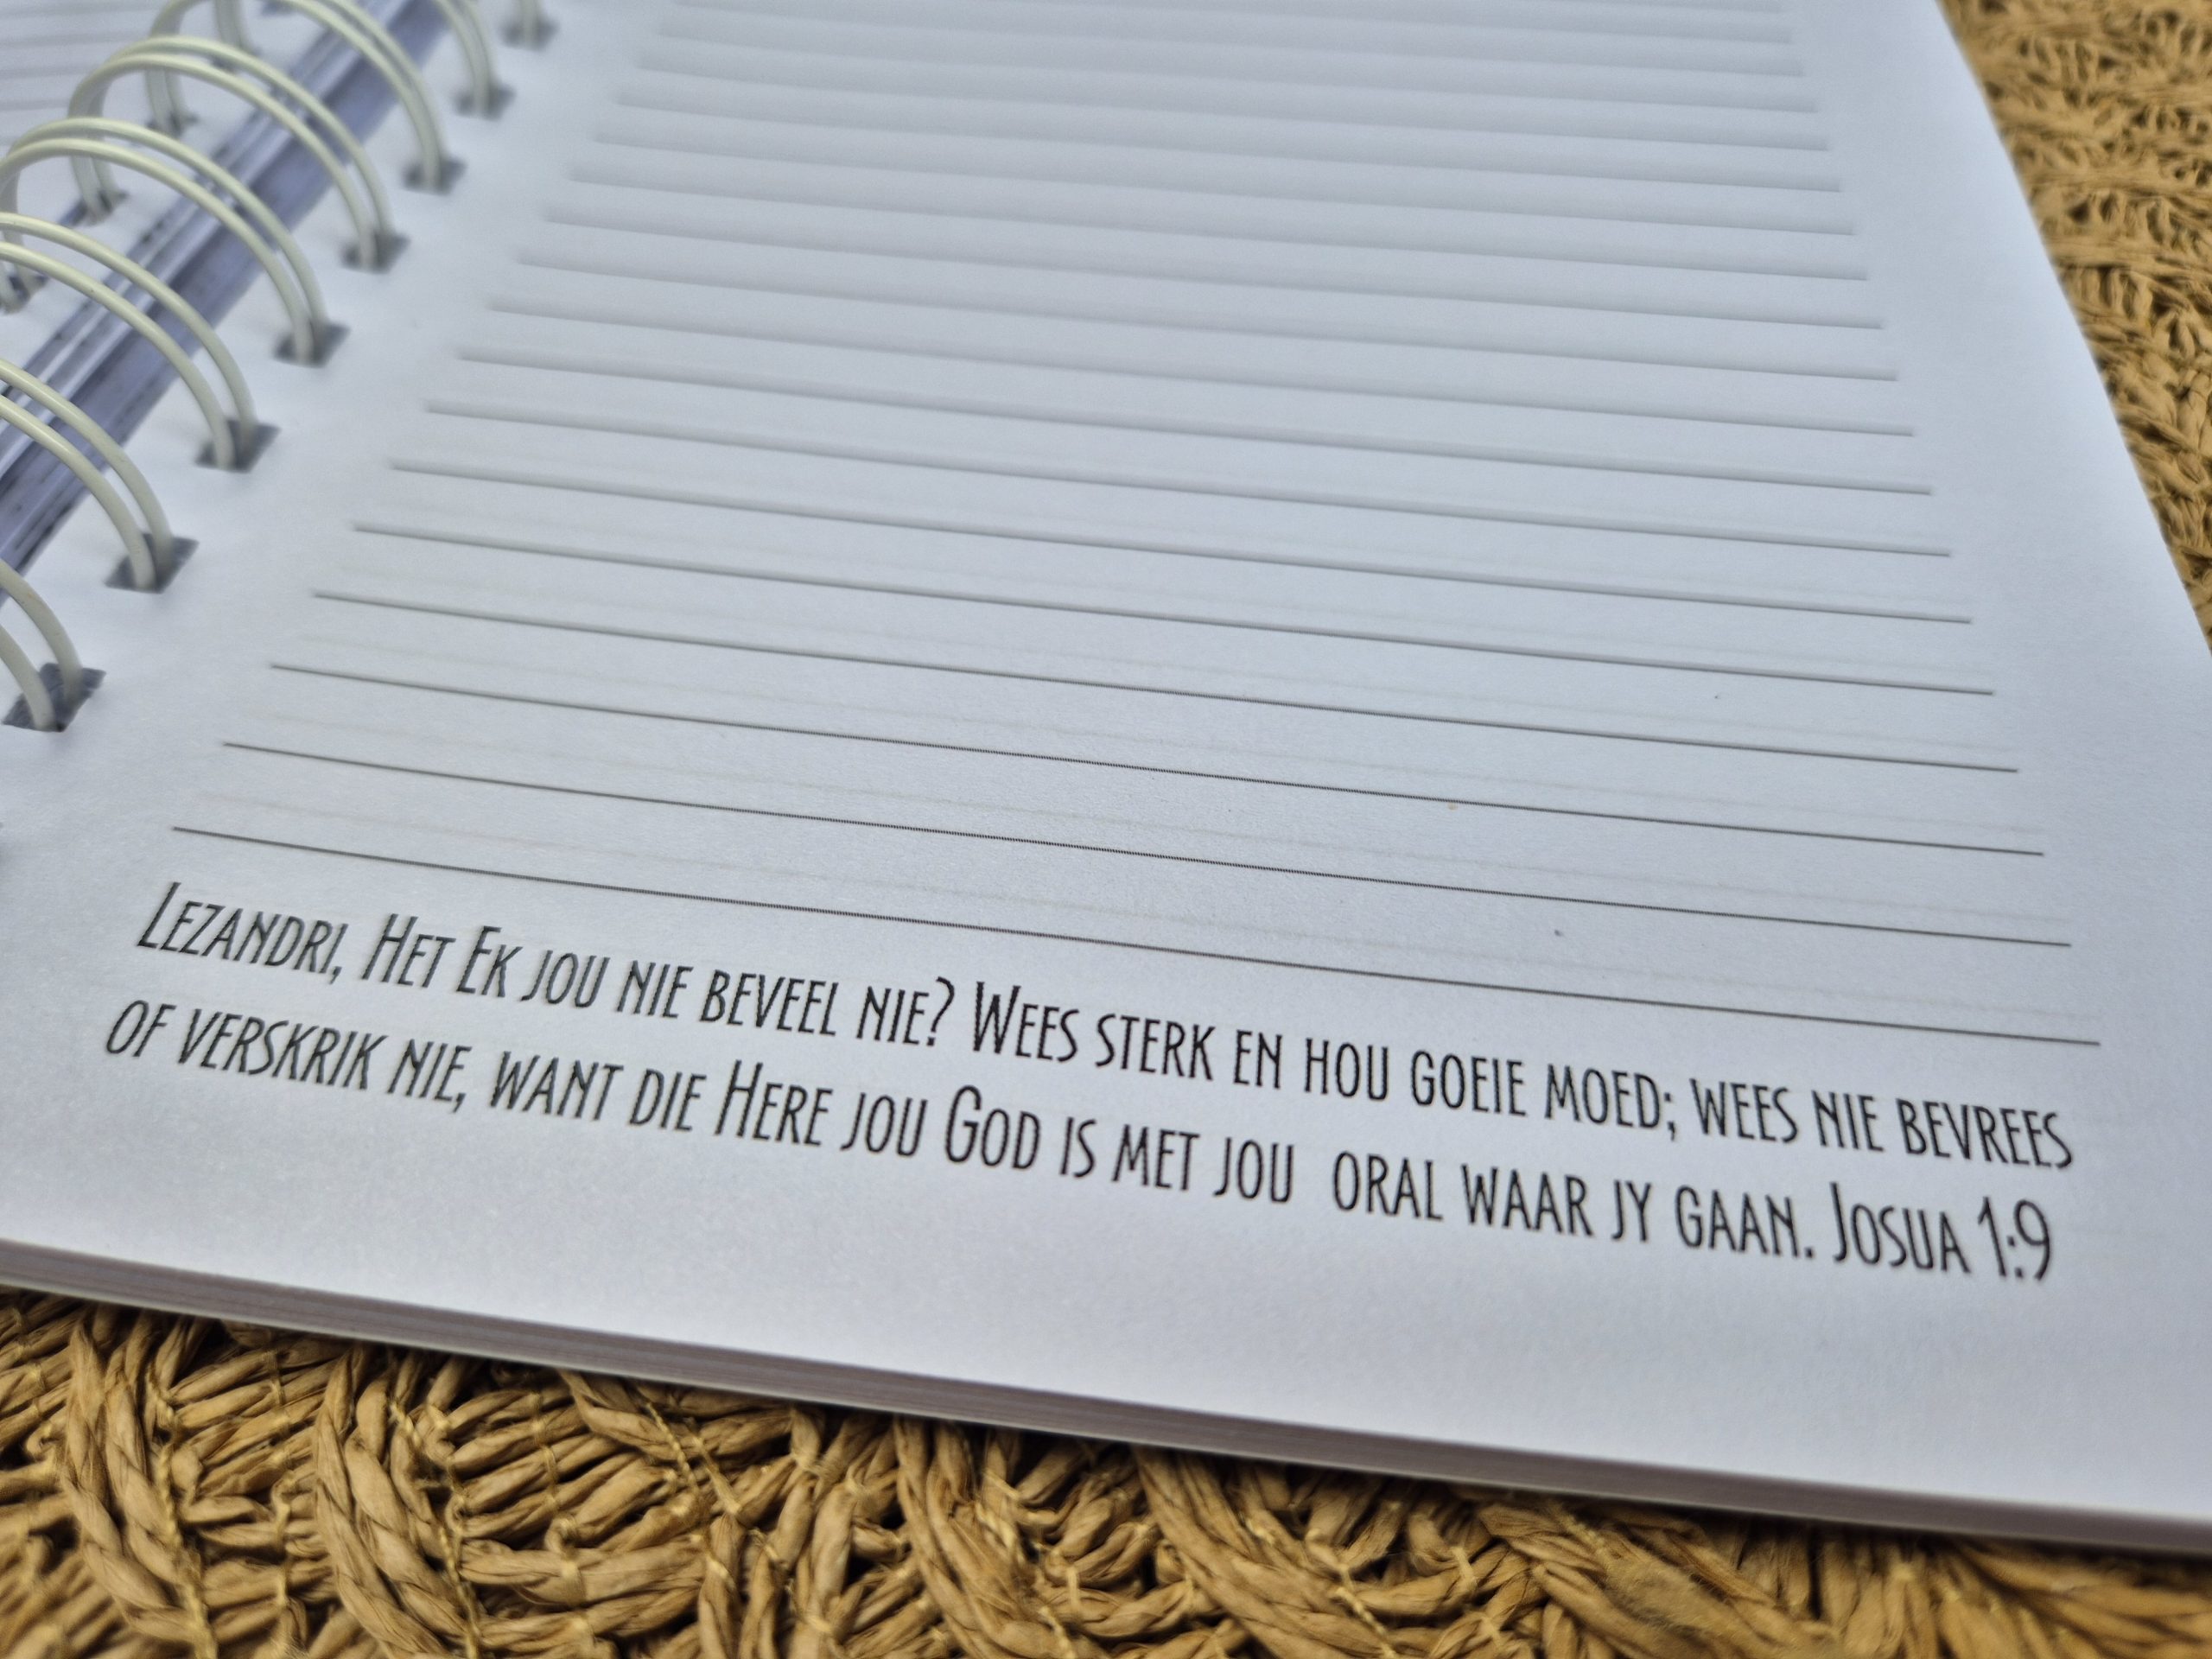 Lezandri, Het Ek jou nie beveel nie? Wees sterk en hou goeie moed; wees nie bevrees
of verskrik nie, want die Here jou God is met jou  oral waar jy gaan. Josua 1:9